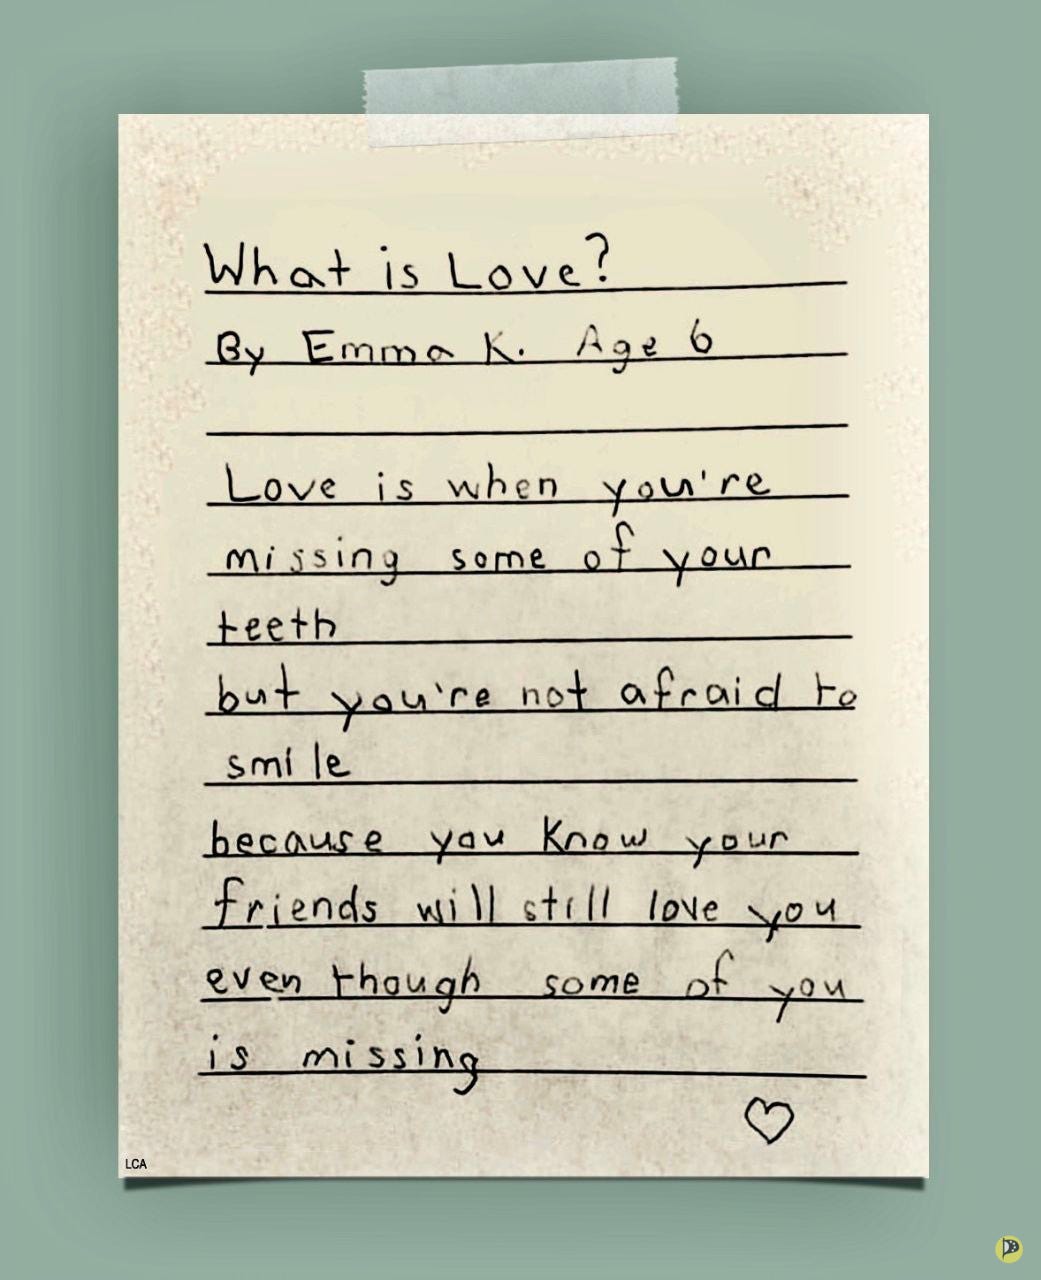 What is Love?
By Emma K. Age 6
Love is when you're
missing some of your
teeth
but you're not afraid to
smile
because you know your
friends will still love you
even though some of you
is missing
LCA